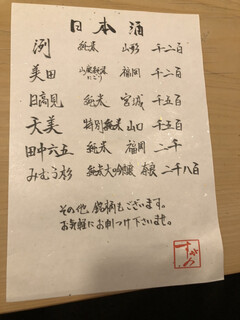 日本酒
洌 純米 山形 千二百
美田 山廃純米にごり 福岡 千二百
日高見 純米 宮城 千五百
天美 特別純米 山口 千五百
田中六五 純米 福岡 二千
みむろ杉 純米大吟醸 奈良 二千八百
その他、銘柄もございます。
お気軽にお申しつけ下さいませ。